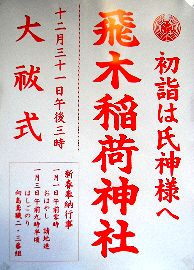 初詣は氏神様へ
飛木稲荷神社
十二月三十一日午後三時
大祓式
新春奉納行事
一月一日午前零時
おはやし 請地連
一月三日午前九時半頃
はしごのり
向島鳶職二、三番組